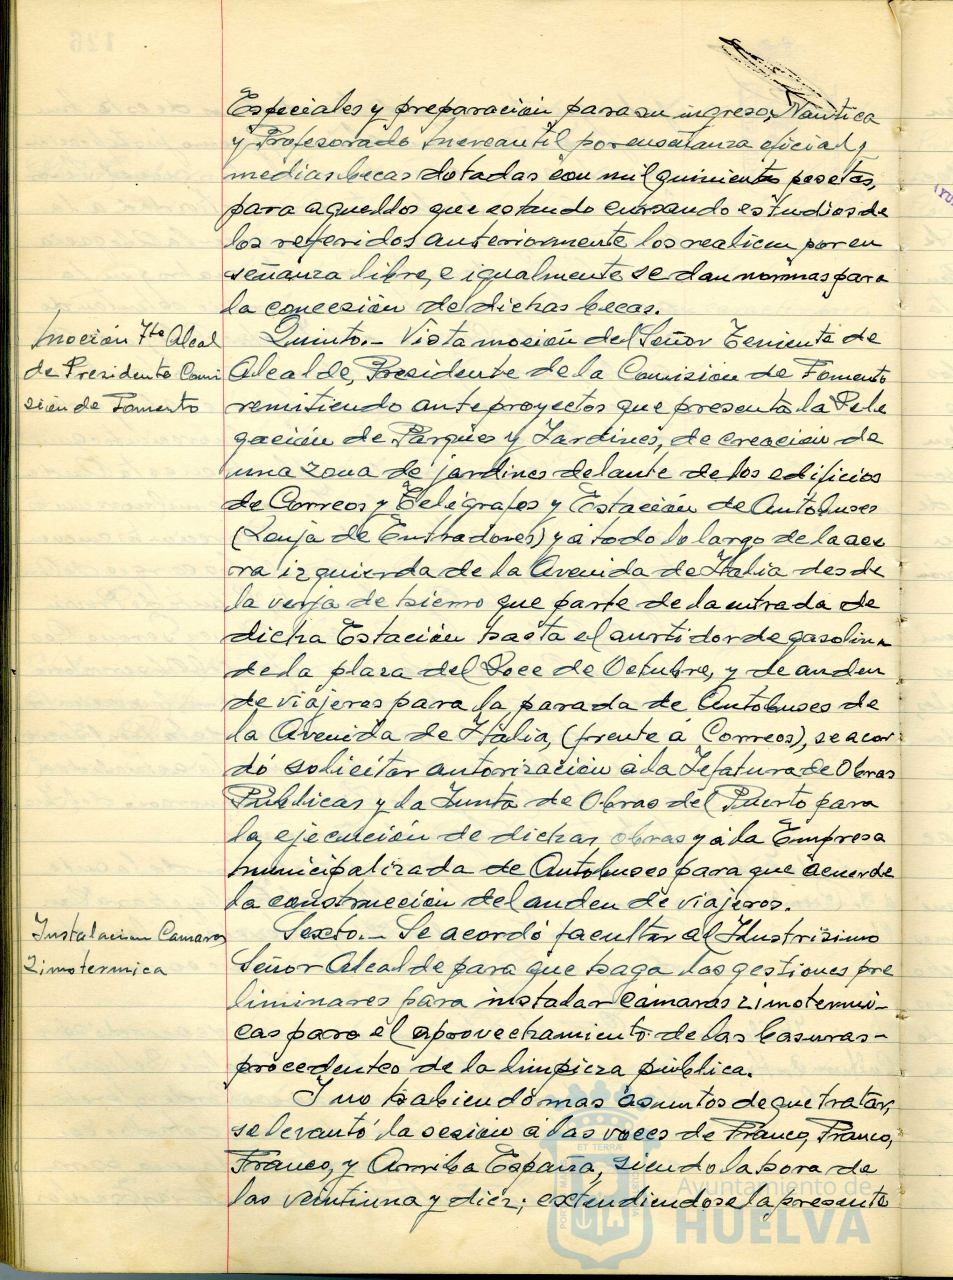 Especiales y preparación para su ingreso, Naútica
y Profesorado Mercantil por enseñanza oficial y
medias becas dotadas con mil quinientas pesetas,
para aquellos que estando cursando estudios de
los referidos anteriormente los realicen por en
señanza libre, e igualmente se dan normas para
la concesión de dichas becas.
Moción Tte Alcal
de Presidente Comi
sión de Fomento
Quinto.- Vista moción del Señor Teniente de
Alcalde, Presidente de la Comisión de Fomento
remitiendo anteproyectos que presenta la Dele
gación de Parques y Jardines, de creación de
una zona de jardines delante de los edificios
de Correos y Telégrafos y Estación de Autobuses
(Lonja de Entradores) y a todo lo largo de la ace
ra izquierda de la Avenida de Italia desde
la verja de hierro que parte de la entrada de
dicha Estación hasta el surtidor de gasolina
de la plaza del Doce de Octubre, y de anden
de viajeros para la parada de Autobuses de
la Avenida de Italia, (frente á Correos), se acor
dó solicitar autorización a la Jefatura de Obras
Públicas y la Junta de Obras del Puerto para
la ejecución de dichas obras y á la Empresa
municipalizada de Autobuses para que acuerde
la construcción del anden de viajeros.
Instalación Camaras
Zimotermica
Sexto.- Se acordó facultar al Ilustrísimo
Señor Alcalde para que haga las gestiones pre
liminares para instalar cámaras zimotermi-
cas para el aprovechamiento de las basuras-
procedentes de la limpieza pública.
Y no habiendo mas asuntos de que tratar,
se levantó la sesión a las voces de Franco, Franco,
Franco, y Arriba España, siendo la hora de
las veintiuna y diez; extendiendose la presente
Ayuntamiento de
HUELVA